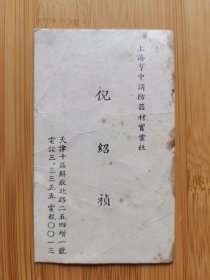 上海亨中消防器材實業社
倪紹禎
天津十區解放北路二五四增一號
電話三.三三五五電報〇〇一三